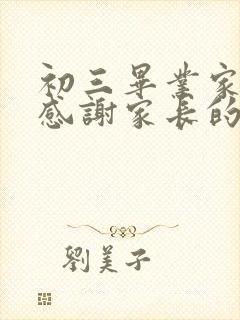 初三畢業家
感謝家長的
劉美子